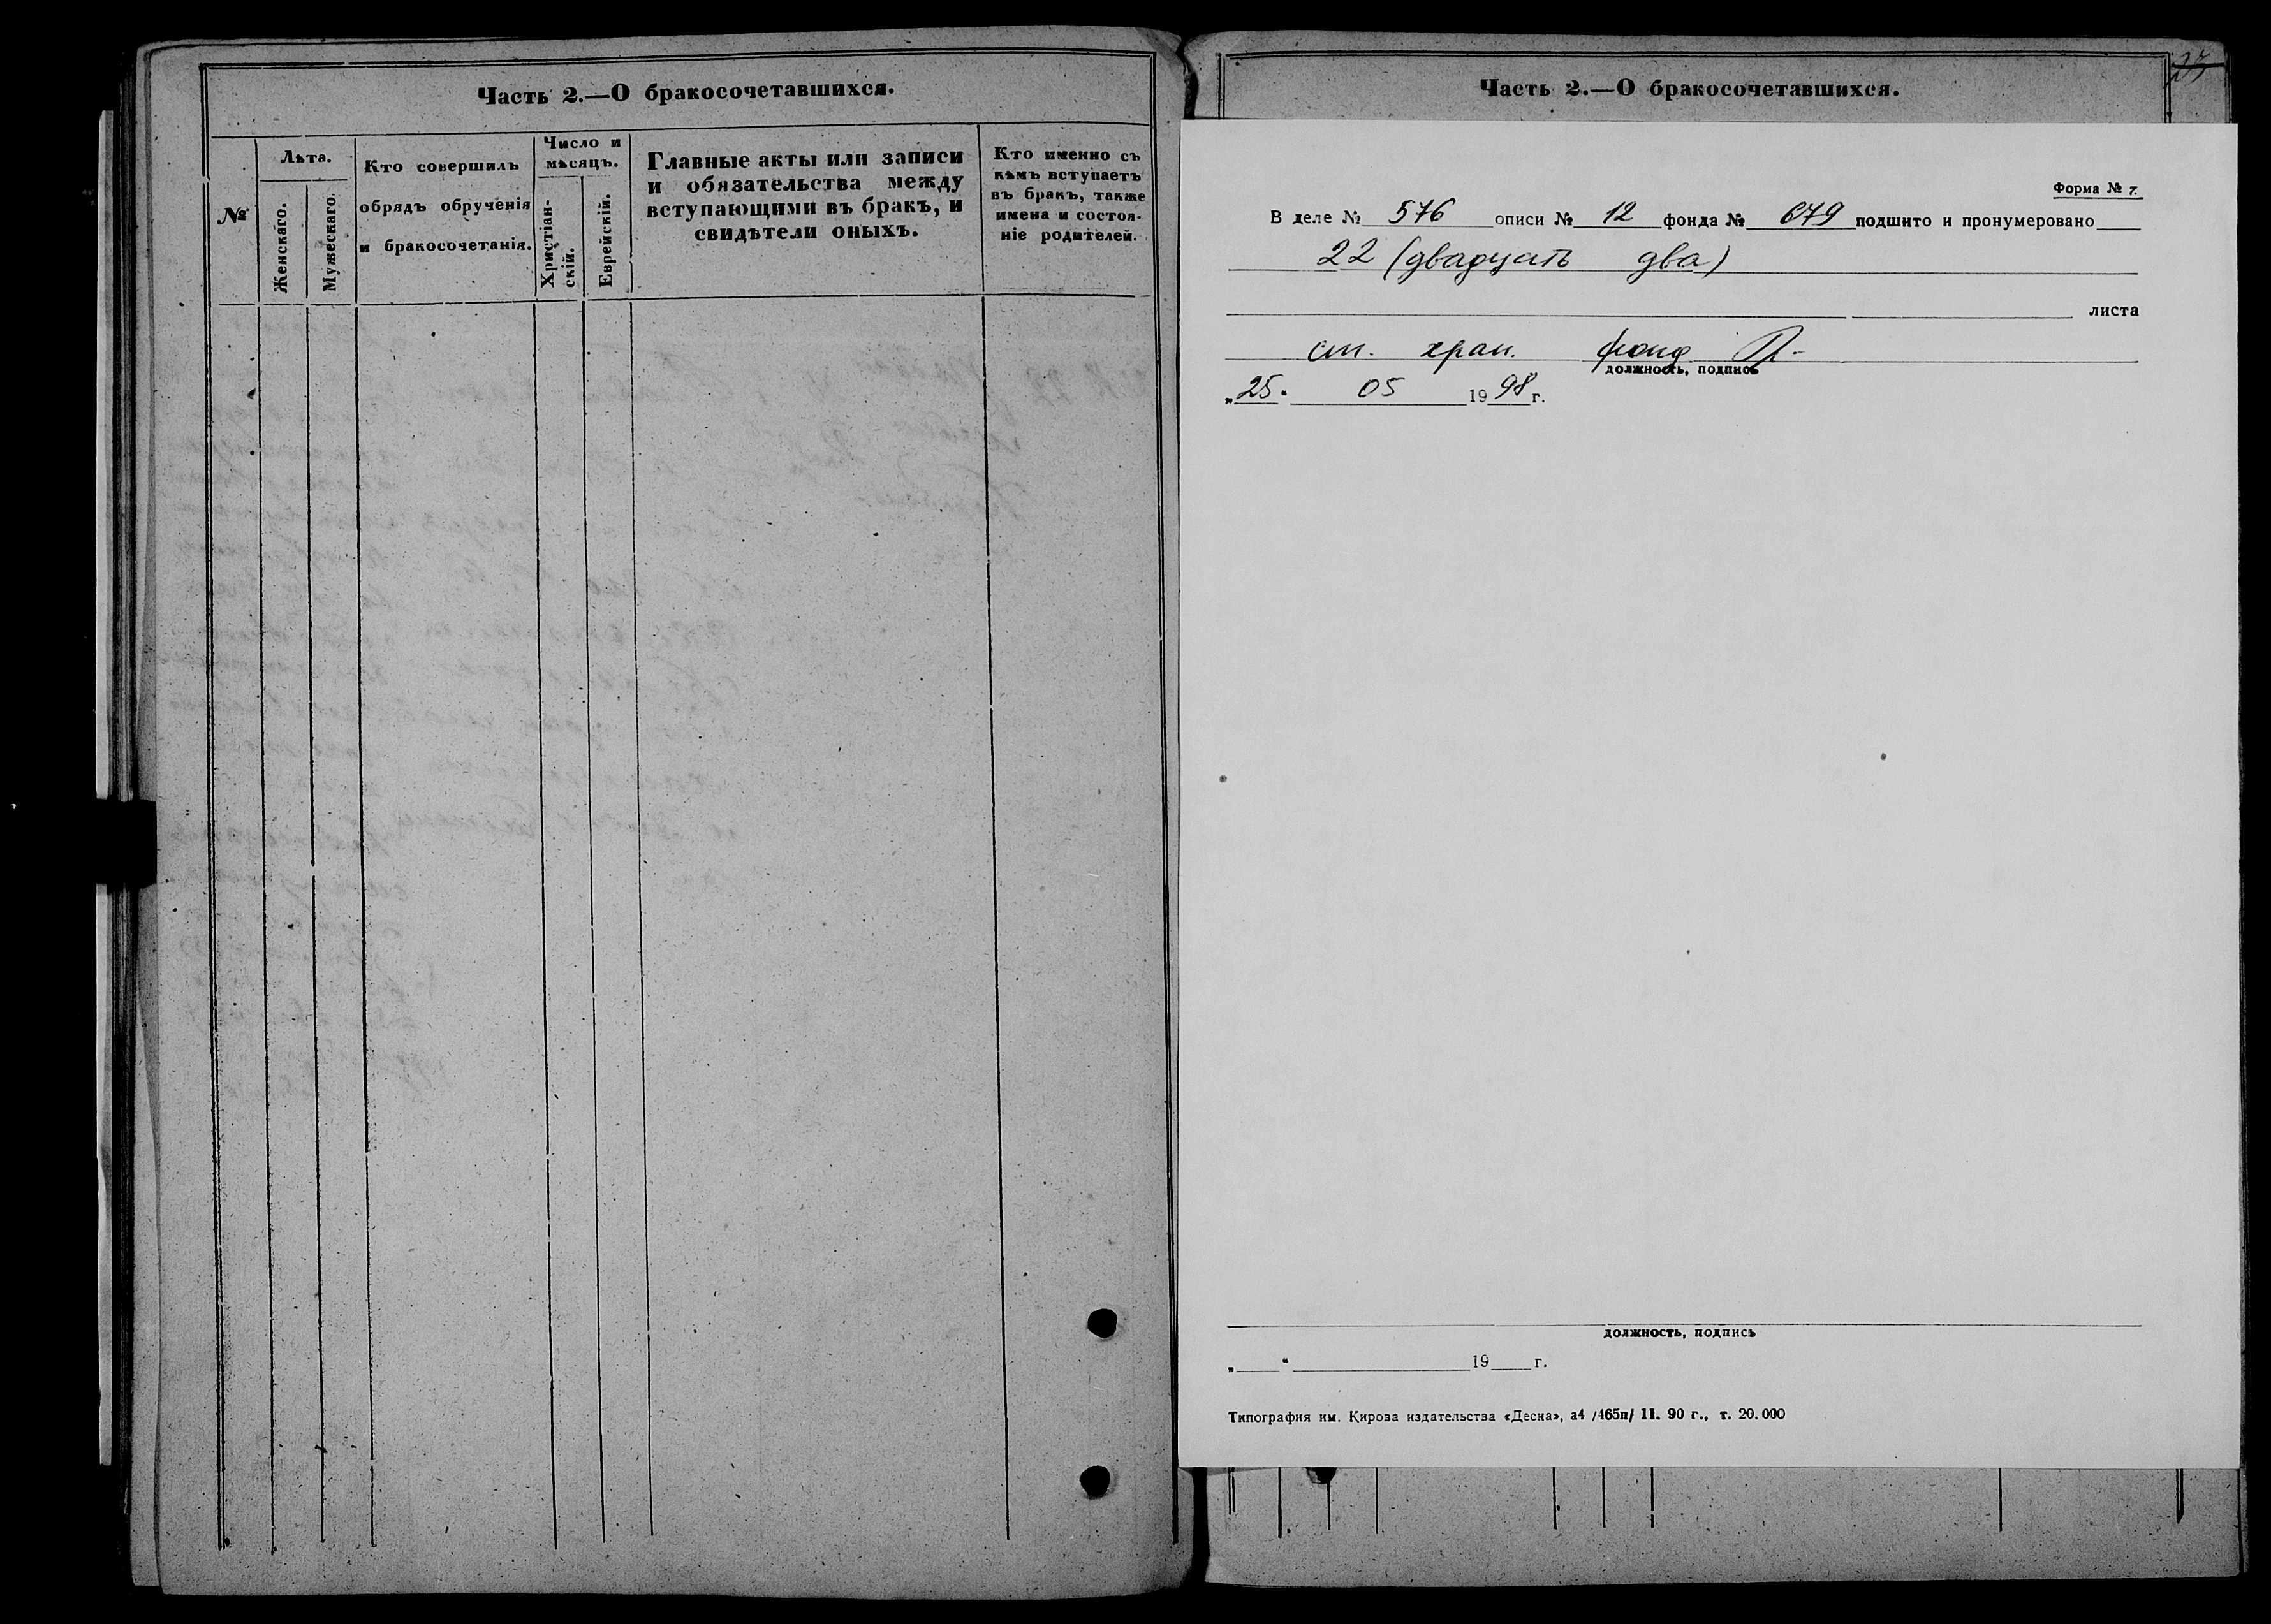 Часть 2.—О бракосочетавшихся.
№
Лѣта.
Женскаго.
Мужескаго.
Кто совершилъ
обрядъ обрученія
и бракосочетанія.
Число и
мѣсяцъ.
Христіан-
скій.
Еврейскій.
Главные акты или записи
и обязательства между
вступающими въ бракъ, и
свидѣтели оныхъ.
Кто именно съ
кѣмъ вступаетъ
въ бракъ, также
имена и состоя-
ніе родителей.
Часть 2.—О бракосочетавшихся.
Форма № 7.
В деле № 576 описи № 12 фонда № 679 подшито и пронумеровано
22 (двадцать два)
листа
ст. хран. фонд
должность, подпись
„25" 05 1998 г.
должность, подпись
„ " 19 г.
Типография им. Кирова издательства «Десна», а4 /465п/ 11. 90 г., т. 20.000